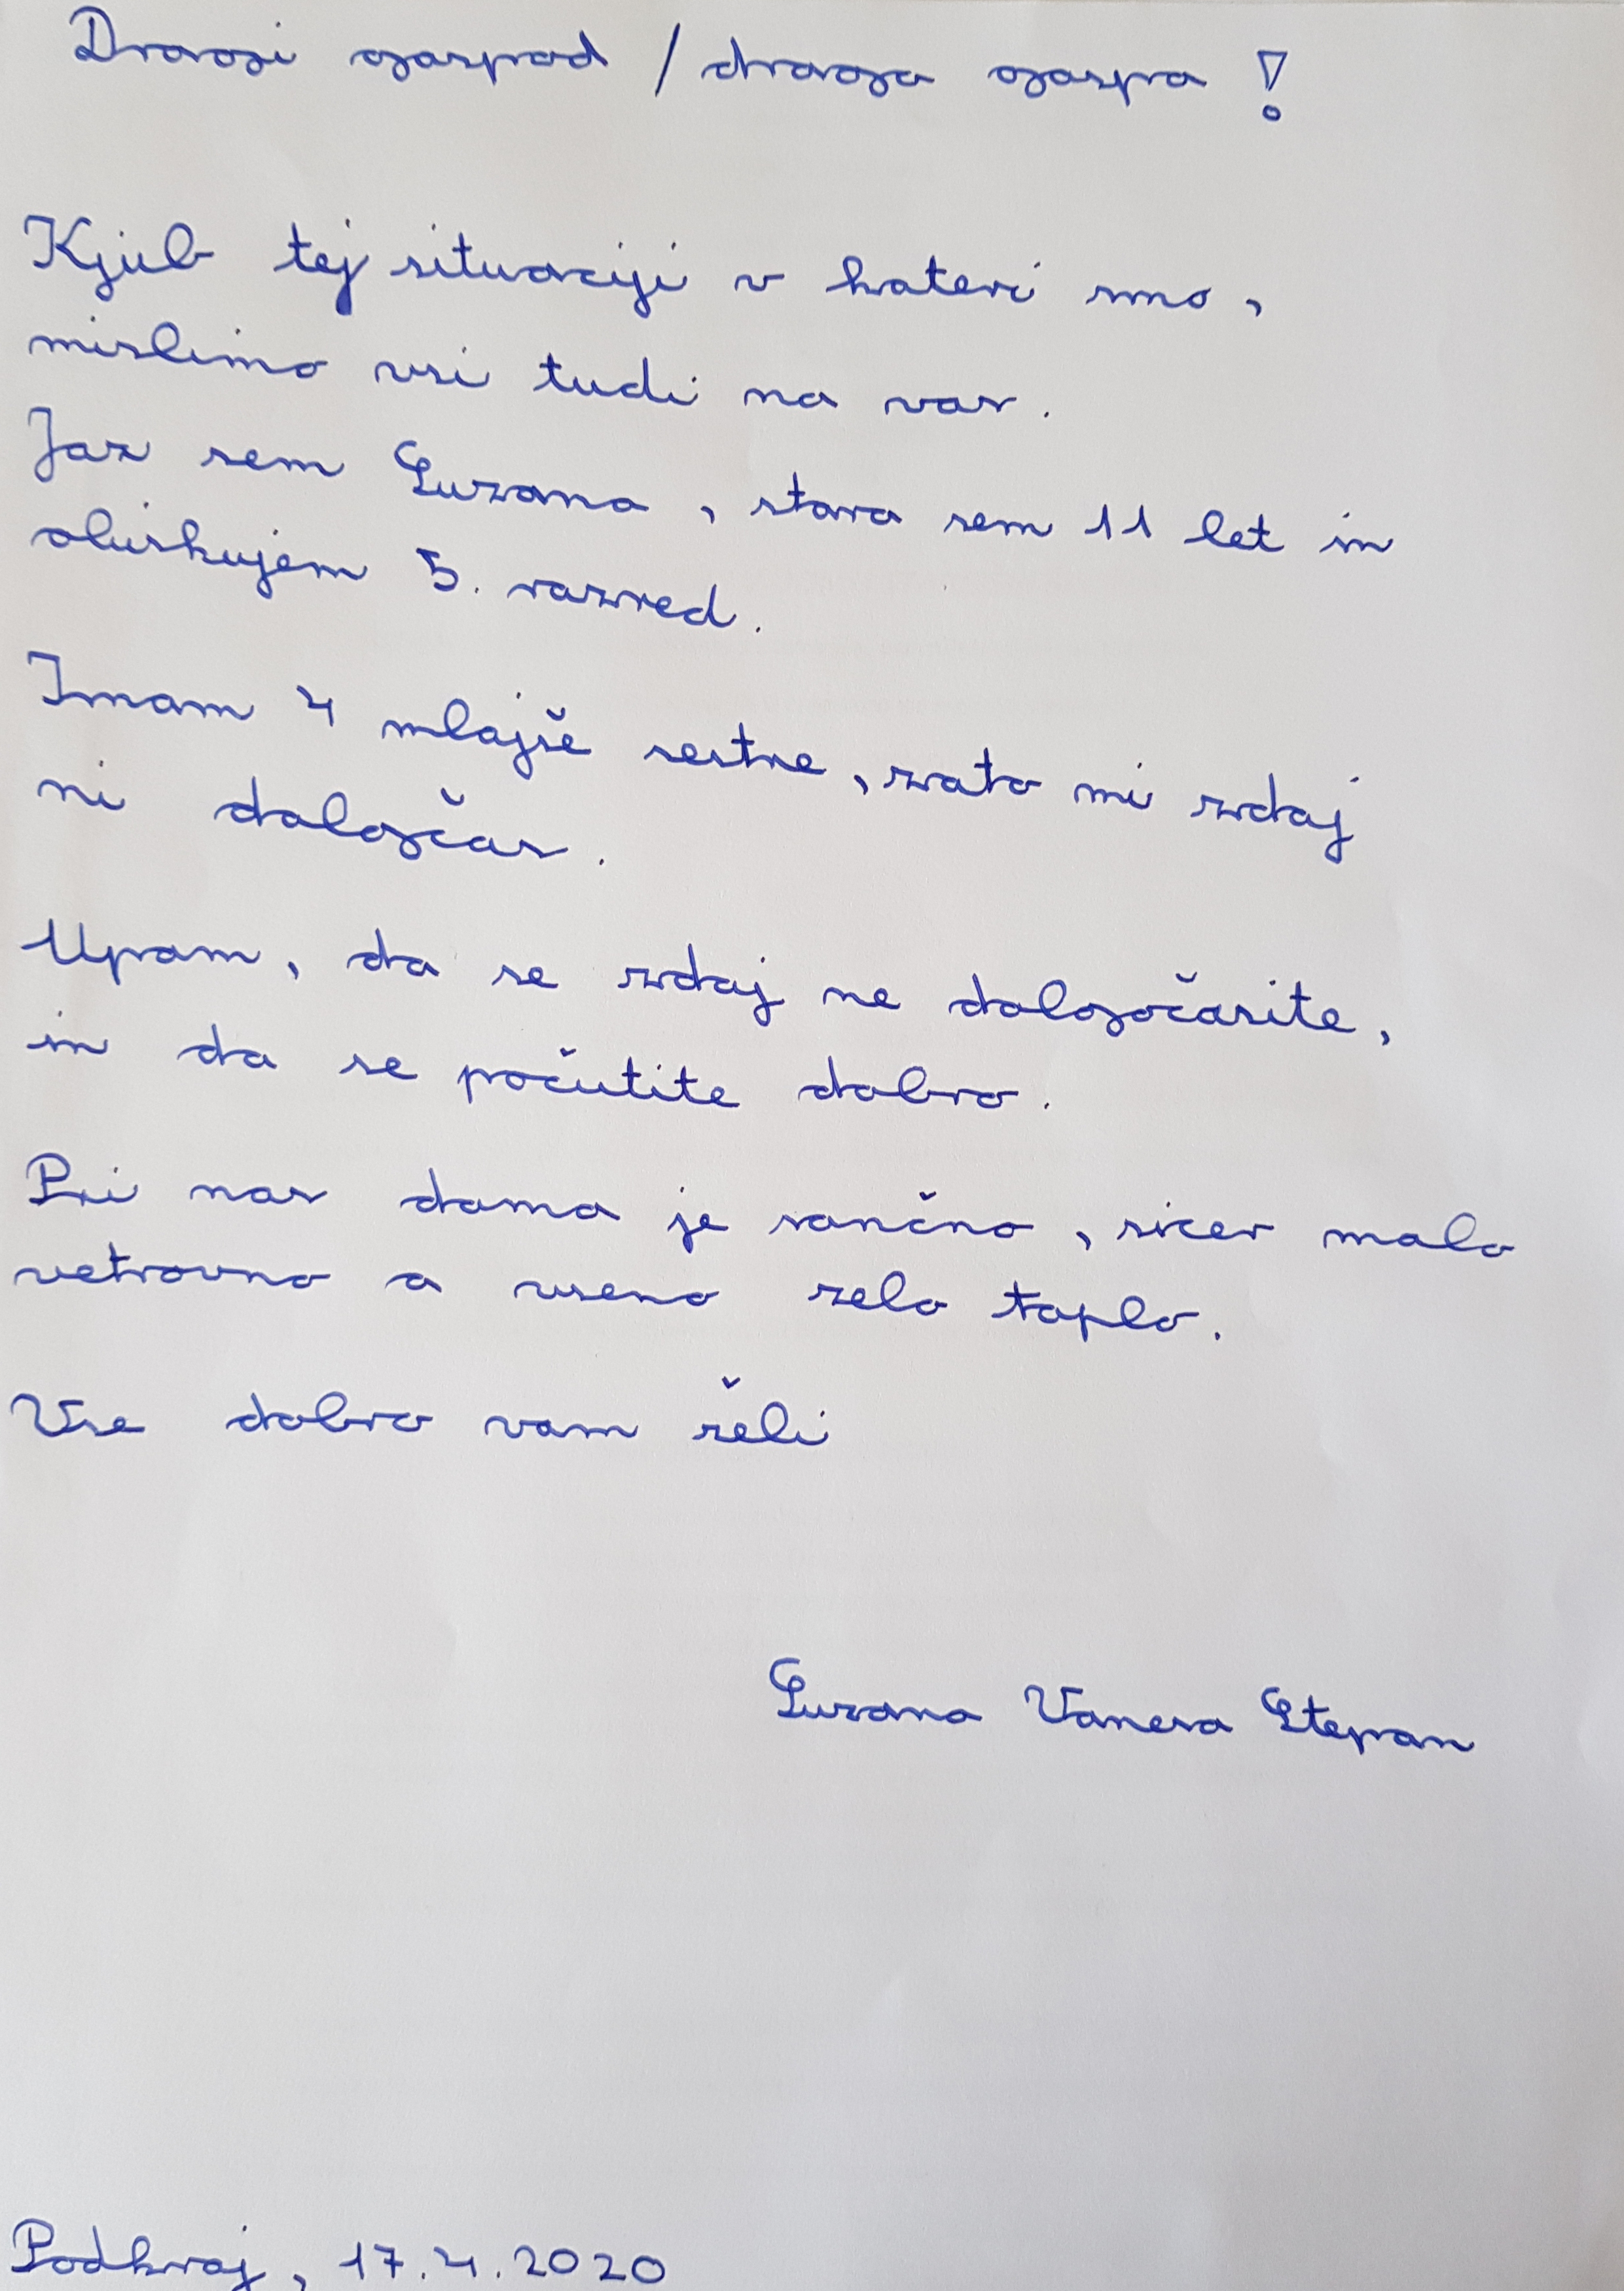 Dragi gospod / draga gospa !
Kjub tej situaciji v kateri smo ,
mislimo vsi tudi na vas .
Jaz sem Suzana , stara sem 11 let in
obiskujem 5. razred .
Imam 4 mlajše sestre , zato mi zdaj
ni dolgčas .
Upam , da se zdaj ne dolgočasite ,
in da se počutite dobro .
Pri nas doma je sončno , sicer malo
vetrovno a vseno zelo toplo .
Vse dobro vam želi
Suzana Vanesa Stepan
Podkraj , 17.4.2020